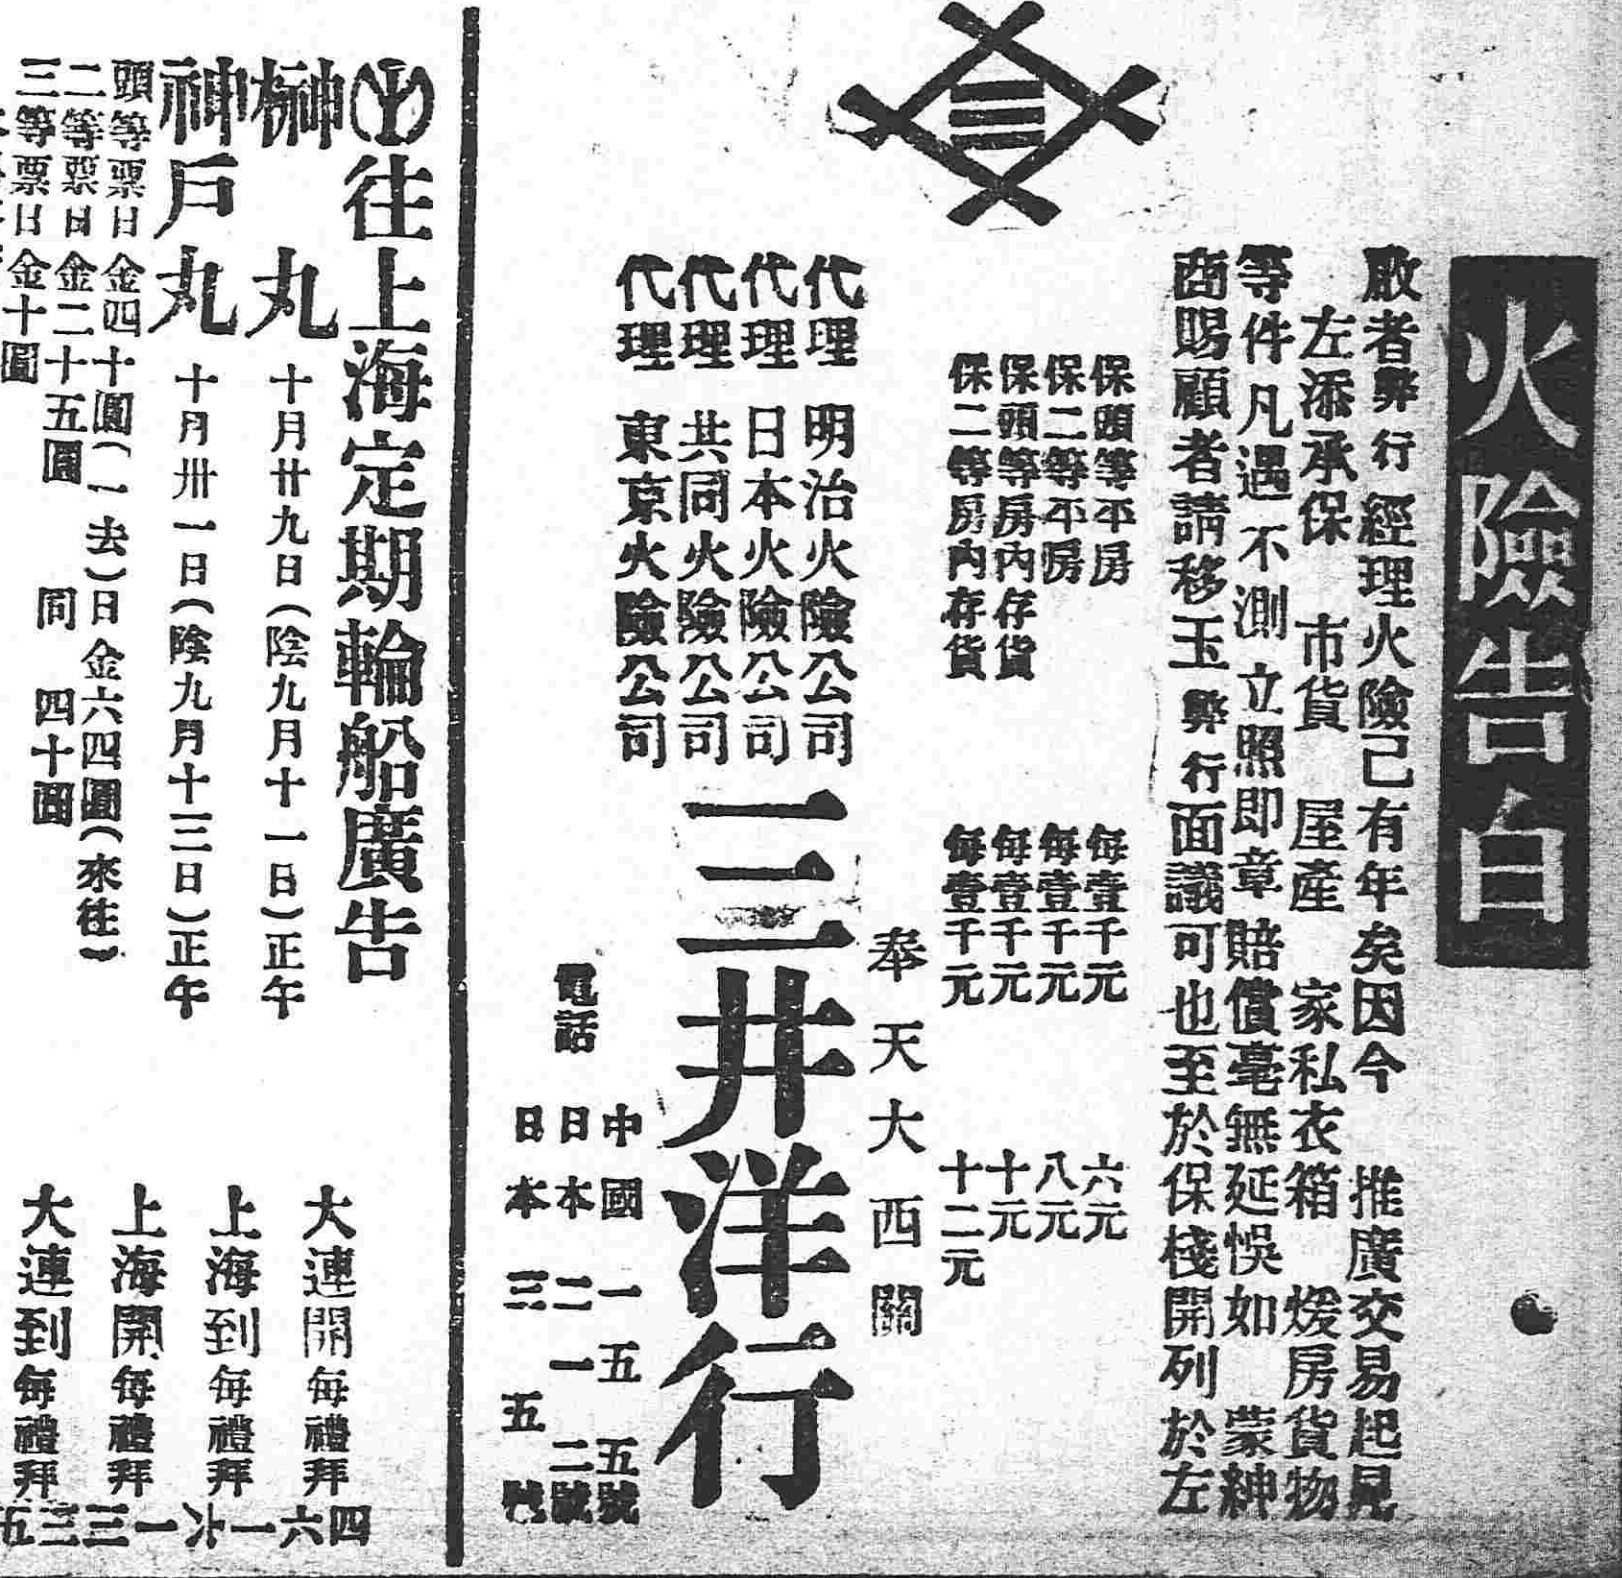 火險告白
啟者弊行經理火險已有年矣因今推廣交易起見
左添承保市貨屋產家私衣箱煖房貨物
等件凡遇不測立照即章賠償毫無延悞如蒙紳
商賜顧者請移玉弊行面議可也至於保棧開列於左
保頭等平房 每壹千元 六元
保二等平房 每壹千元 八元
保頭等房內存貨 每壹千元 十元
保二等房內存貨 每壹千元 十二元
奉天大西關
三井洋行
代理 明治火險公司
代理 日本火險公司
代理 共同火險公司
代理 東京火險公司
電話
中國一五五號
日本二一二號
日本三五號
往上海定期輪船廣告
榊丸 十月廿九日(陰九月十一日)正午
神戶丸 十月卅一日(陰九月十三日)正午
頭等票日金四十圓(一去)日金六四圓(來往)
二等票日金二十五圓 同 四十圓
三等票日金十圓
大連開每禮拜四六
上海到每禮拜一
上海開每禮拜一三
大連到每禮拜三五